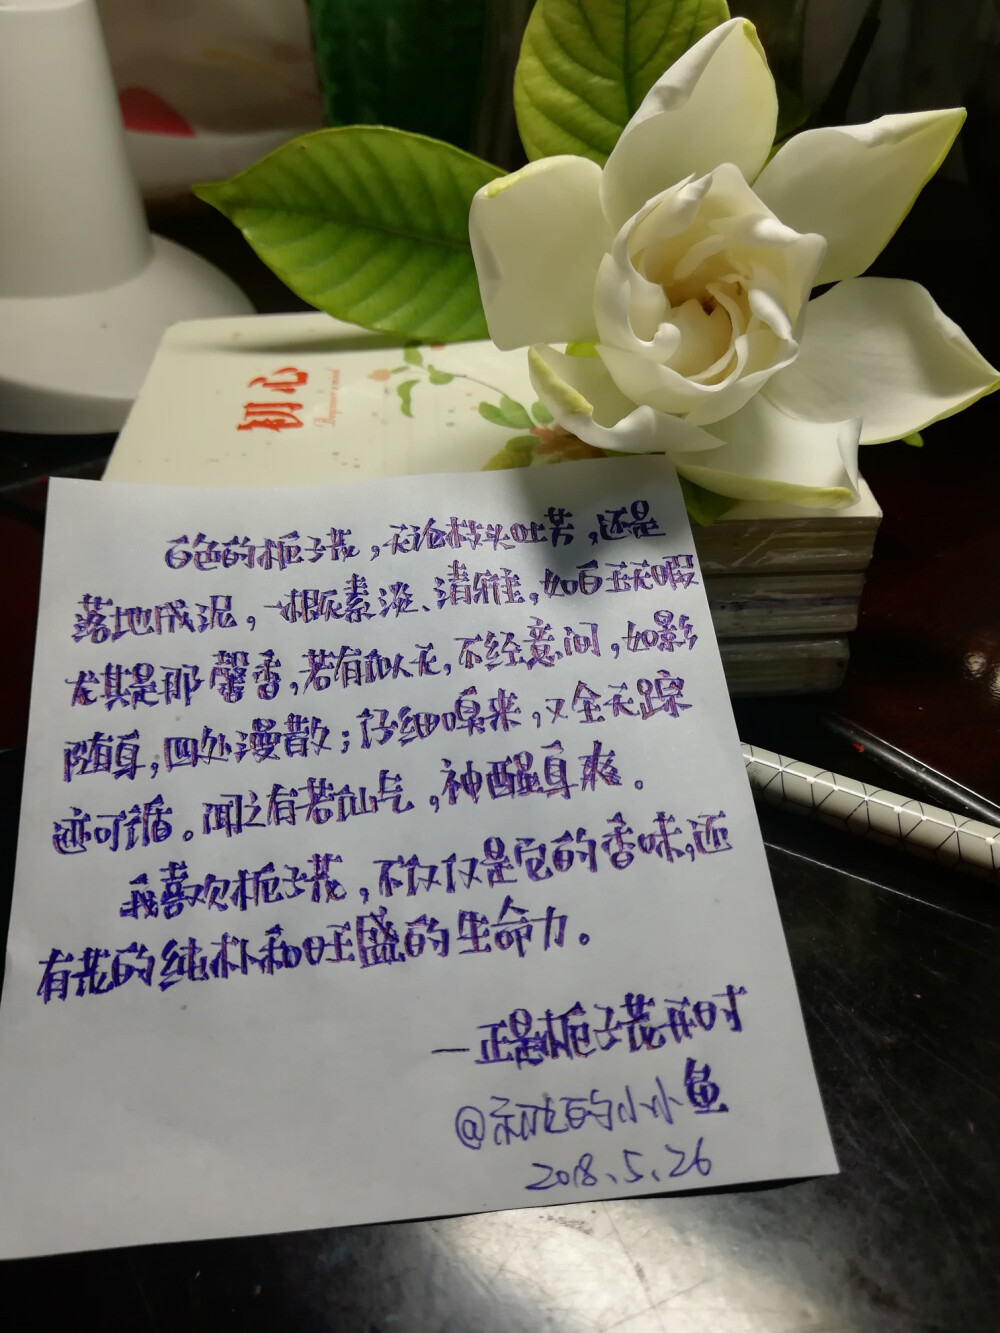 初心
Beginner's mind
白色的栀子花，无论枝头吐芳，还是
落地成泥，一样灰素淡、清雅，如白玉无暇
尤其是那馨香，若有似无，不经意间，如影
随身，四处漫散；仔细嗅来，又全无踪
迹可循。闻之有若仙气，神醒身爽。
我喜欢栀子花，不仅仅是它的香味，还
有花的纯朴和旺盛的生命力。
—正是栀子花开时
的小小鱼
2018.5.26